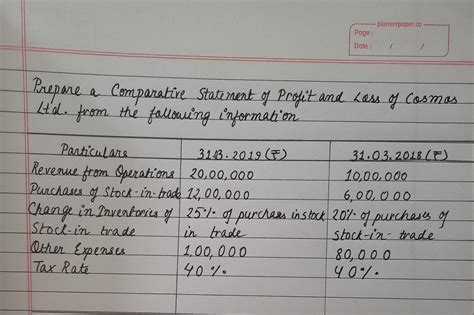 pioneerpaper.co
Page :
Date : / /
Prepare a Comparative Statement of Profit and Loss of Cosmos
Ltd. from the following information
Particulars 31.03.2019 (₹) 31.03.2018 (₹)
Revenue from Operations 20,00,000 10,00,000
Purchases of Stock-in-trade 12,00,000 6,00,000
Change in Inventories of 25% of purchases in stock 20% of purchases of
Stock-in trade in trade stock-in-trade
Other Expenses 1,00,000 80,000
Tax Rate 40% 40%